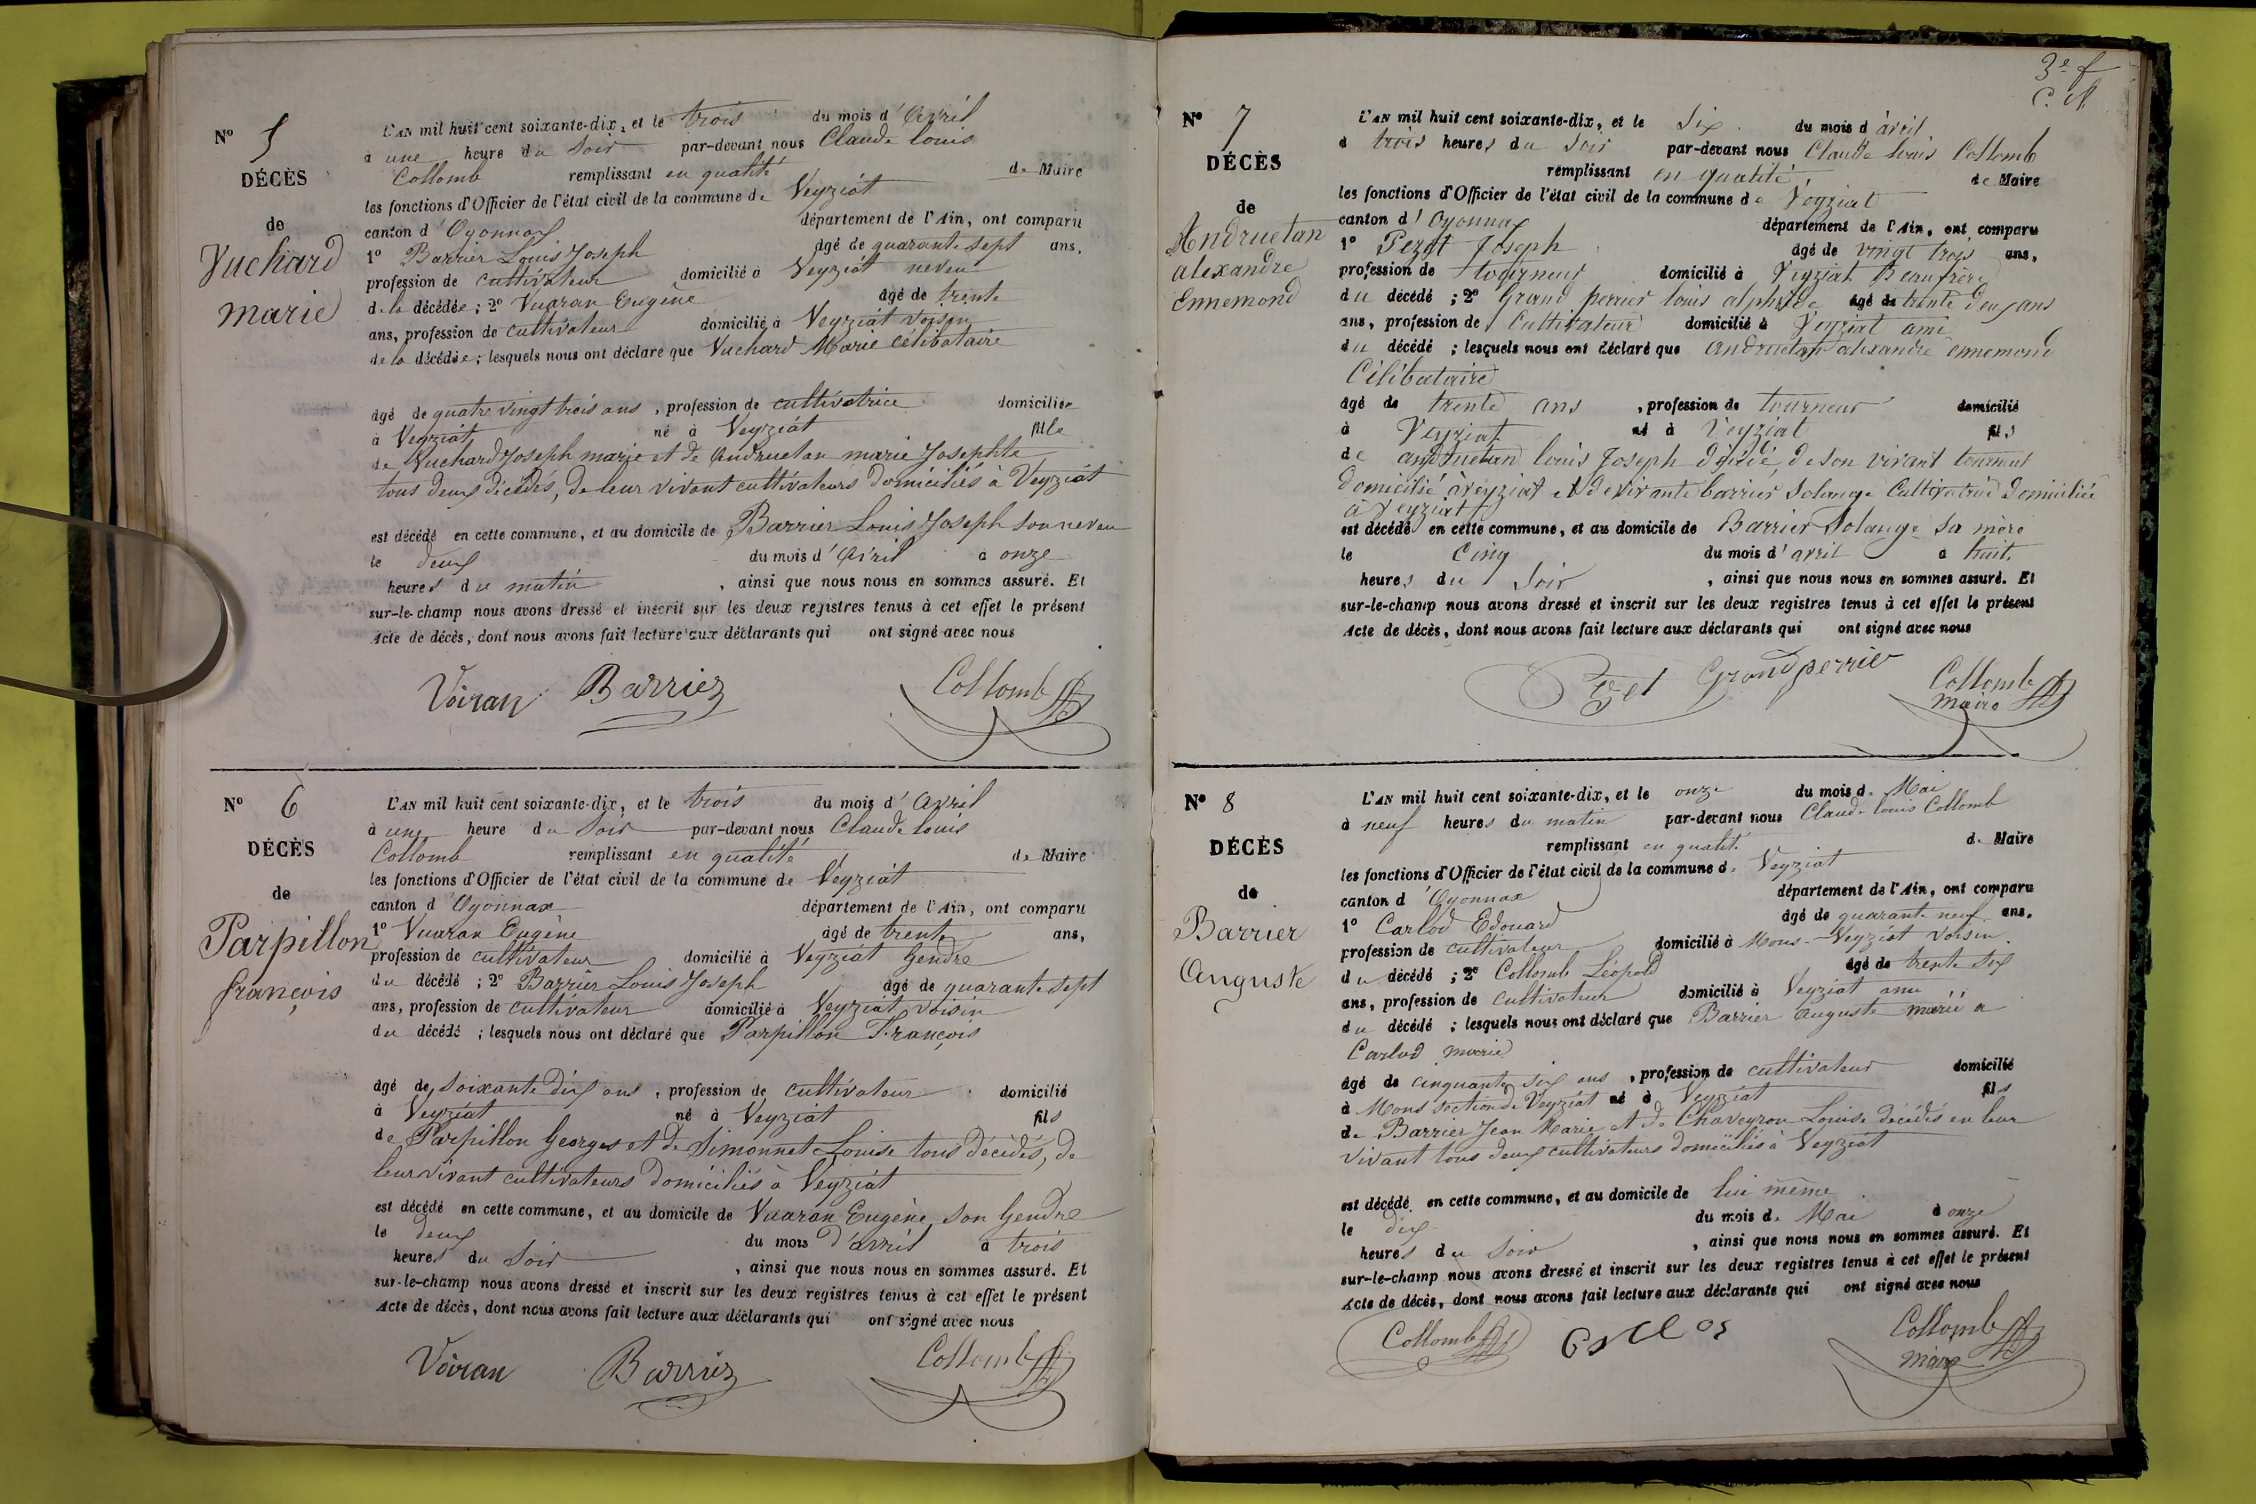 Nº 5
DÉCÈS
de
Vuchard
marie
L'AN mil huit cent soixante-dix, et le trois du mois d'Avril
à une heure du Soir par-devant nous Claude Louis
Collomb remplissant en qualité de Maire
les fonctions d'Officier de l'état civil de la commune de Veyziat
canton d'Oyonnax département de l'Ain, ont comparu
1º Barrier Louis Joseph âgé de quarante sept ans,
profession de cultivateur domicilié à Veyziat neveu
de la décédée; 2º Vuaran Eugène âgé de trente
ans, profession de cultivateur domicilié à Veyziat voisin
de la décédée; lesquels nous ont déclaré que Vuchard Marie célibataire
âgé de quatre vingt trois ans, profession de cultivatrice domiciliée
à Veyziat né à Veyziat fille
de Vuchard Joseph marie et de Andruetan marie Josephte
tous deux décédés, de leur vivant cultivateurs domiciliés à Veyziat
est décédé en cette commune, et au domicile de Barrier Louis Joseph son neveu
le deux du mois d'Avril à onze
heures du matin, ainsi que nous nous en sommes assuré. Et
sur-le-champ nous avons dressé et inscrit sur les deux registres tenus à cet effet le présent
Acte de décès, dont nous avons fait lecture aux déclarants qui ont signé avec nous
Voiran Barrier Collomb
Nº 6
DÉCÈS
de
Parpillon
françois
L'AN mil huit cent soixante-dix, et le trois du mois d'avril
à une heure du Soir par-devant nous Claude Louis
Collomb remplissant en qualité de Maire
les fonctions d'Officier de l'état civil de la commune de Veyziat
canton d Oyonnax département de l'Ain, ont comparu
1º Vuaran Eugène âgé de trente ans,
profession de cultivateur domicilié à Veyziat Gendre
du décédé; 2º Barrier Louis Joseph âgé de quarante sept
ans, profession de cultivateur domicilié à Veyziat voisin
du décédé; lesquels nous ont déclaré que Parpillon François
âgé de soixante dix ans, profession de cultivateur domicilié
à Veyziat né à Veyziat fils
de Parpillon Georges et de Simonnet Louise tous décédés, de
leur vivant cultivateurs domiciliés à Veyziat
est décédé en cette commune, et au domicile de Vuaran Eugène, son Gendre
le deux du mois d'avril à trois
heures du Soir, ainsi que nous nous en sommes assuré. Et
sur-le-champ nous avons dressé et inscrit sur les deux registres tenus à cet effet le présent
Acte de décès, dont nous avons fait lecture aux déclarants qui ont signé avec nous
Voiran Barrier Collomb
3e f
Nº 7
DÉCÈS
de
Andruetan
alexandre
Ennemond
L'AN mil huit cent soixante-dix, et le Six du mois d'avril
à trois heures du Soir par-devant nous Claude Louis Collomb
remplissant en qualité de Maire
les fonctions d'Officier de l'état civil de la commune de Veyziat
canton d'Oyonnax département de l'Ain, ont comparu
1º Pezet Joseph âgé de vingt trois ans,
profession de tourneur domicilié à Veyziat Beaufrère
du décédé; 2º Grand perrier louis alphride âgé de trente deux ans
ans, profession de Cultivateur domicilié à Veyziat ami
du décédé; lesquels nous ont déclaré que andruetan alexandre ennemond
Célibataire
âgé de trente ans, profession de tourneur domicilié
à Veyziat né à Veyziat fils
de andruetan louis Joseph décédé, de son vivant tourneur
domicilié à veyziat et de vivante barrier Solange Cultivatrice Domiciliée
à Veyziat
est décédé en cette commune, et au domicile de Barrier Solange sa mère
le Cinq du mois d'avril à huit
heures du Soir, ainsi que nous nous en sommes assuré. Et
sur-le-champ nous avons dressé et inscrit sur les deux registres tenus à cet effet le présent
Acte de décès, dont nous avons fait lecture aux déclarants qui ont signé avec nous
Grandperrier Collomb
Maire
Nº 8
DÉCÈS
de
Barrier
Auguste
L'AN mil huit cent soixante-dix, et le onze du mois de Mai
à neuf heures du matin par-devant nous Claude louis Collomb
remplissant en qualité de Maire
les fonctions d'Officier de l'état civil de la commune de Veyziat
canton d'Oyonnax département de l'Ain, ont comparu
1º Carlod Edouard âgé de quarante neuf ans,
profession de cultivateur domicilié à Mons-Veyziat voisin
du décédé; 2º Collomb Léopold âgé de trente six
ans, profession de cultivateur domicilié à Veyziat ami
du décédé; lesquels nous ont déclaré que Barrier Auguste marié a
Carlod marie
âgé de cinquante six ans, profession de cultivateur domicilié
à Mons section de Veyziat né à Veyziat fils
de Barrier Jean Marie et de Chaveyron Louise décédés en leur
vivant tous deux cultivateurs domiciliés à Veyziat
est décédé en cette commune, et au domicile de lui même
le dix du mois de Mai à onze
heures du Soir, ainsi que nous nous en sommes assuré. Et
sur-le-champ nous avons dressé et inscrit sur les deux registres tenus à cet effet le présent
Acte de décès, dont nous avons fait lecture aux déclarants qui ont signé avec nous
Collomb Collomb
Maire